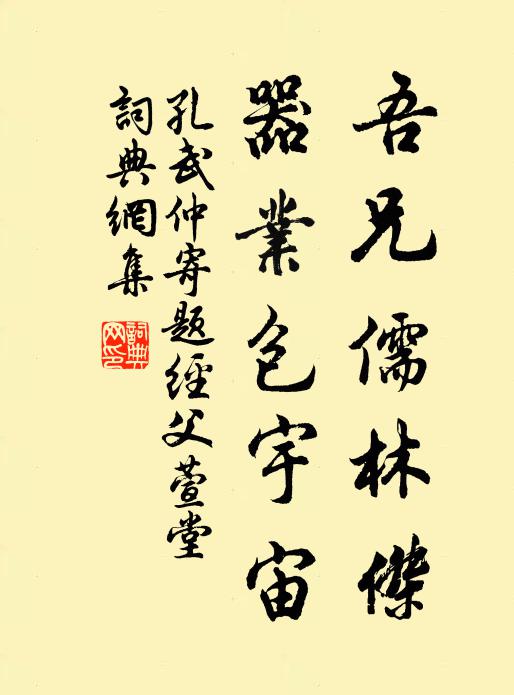 吾兄儒林傑
器業包宇宙
孔武仲寄題經父萱堂
詞典網集
詞典
网印